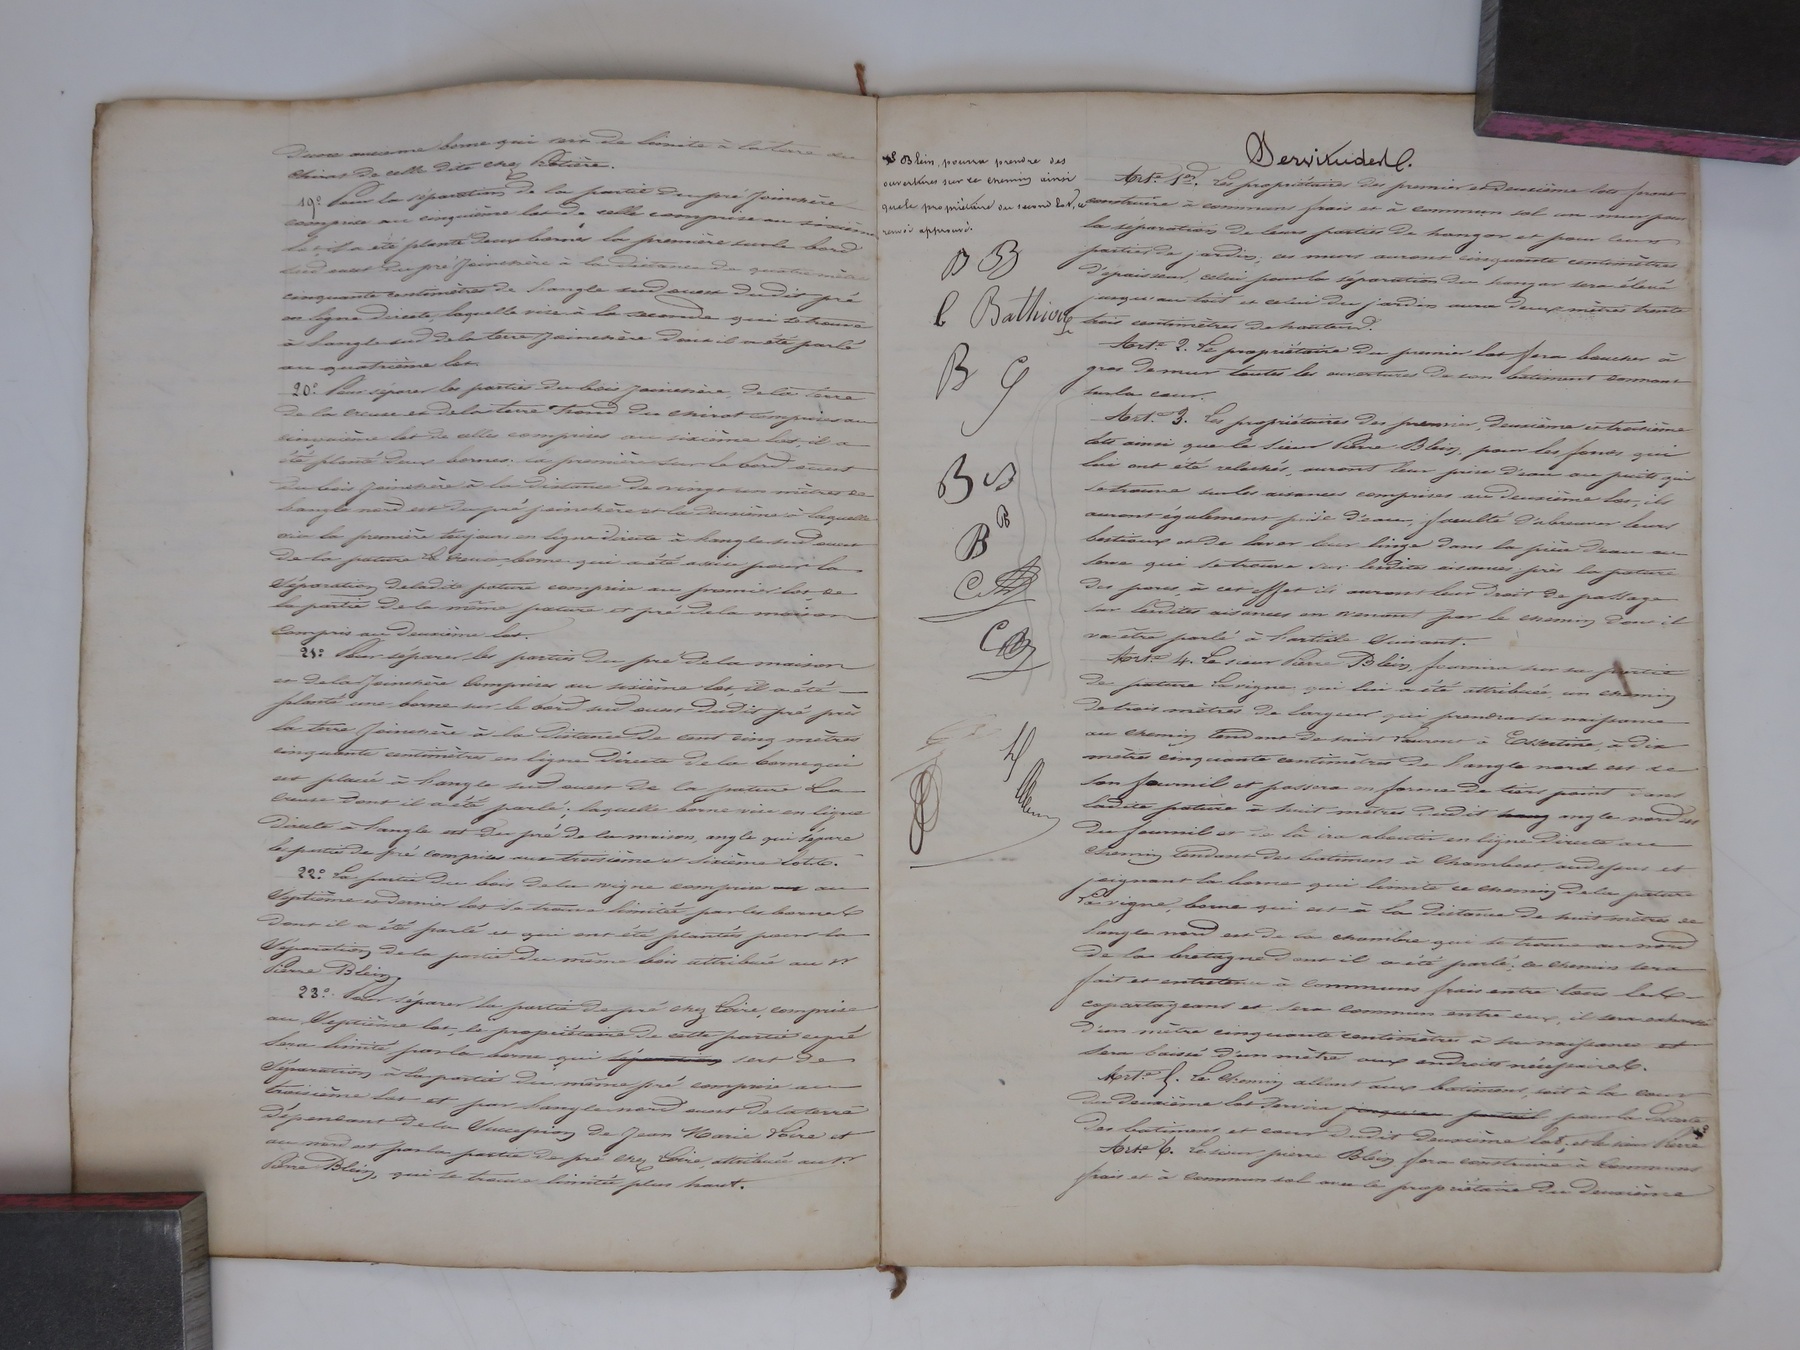 aucune borne qui sert de limite à la terre du
chirat de celle dite chez Ratière.
19º Pour la séparation de la partie du pré Jeinchère
comprise au cinquième lot de celle comprise au sixième
lot, il a été planté deux bornes la première sur le bord
sud ouest du pré Jeinchère à la distance de quatre mètres
cinquante centimètres de l'angle sud ouest dudit pré
en ligne directe, laquelle vise à la seconde qui se trouve
à l'angle sud de la terre Jeinchère dont il a été parlé
au quatrième lot.
20º Pour séparer les parties du bois Jeinchère, de la terre
de la creuse et de la terre du chirat comprises au
cinquième lot de celles comprises au sixième lot, il a
été planté deux bornes. La première sur le bord ouest
du bois Jeinchère à la distance de vingt un mètres de
l'angle nord est du pré Jeinchère et la deuxième à laquelle
vise la première toujours en ligne directe à l'angle sud ouest
de la pature borne qui a été assise pour la
séparation de ladite pature comprise au premier lot de
la partie de la même pature et pré de la maison
compris au deuxième lot.
21º Pour séparer les parties du pré de la maison
et de la Jeinchère comprises au sixième lot, il a été
planté une borne sur le bord sud ouest dudit pré près
la terre Jeinchère à la distance de cent cinq mètres
cinquante centimètres en ligne directe de la borne qui
est placée à l'angle sud ouest de la pature La
creuse dont il a été parlé; laquelle borne vise en ligne
directe à l'angle est du pré de la maison, angle qui sépare
les parties de pré comprises aux troisième et sixième lots.
22º La partie du bois de la vigne comprise au
septième et dernier lot se trouve limitée par les bornes
dont il a été parlé et qui ont été plantées pour la
séparation de la partie du même bois attribuée au sr
Pierre Blein.
23º Pour séparer la partie de pré chez Loire, comprise
au septième lot, le propriétaire de cette partie de pré
sera limité par la borne qui sert de
séparation à la partie du même pré comprise au
troisième lot et par l'angle nord ouest de la terre
dépendant de la succession de Jean Marie Loire et
au nord est par la partie de pré chez Loire, attribuée au sr
Pierre Blein, qui se trouve limitée plus haut.
Blein, pourra prendre des
ouvertures sur ce chemin ainsi
que le propriétaire du second lot, ce
renvoi approuvé.
B B
C Bathion
B G
B B
B B
C
C B
Servitudes.
Art. 1er. Les propriétaires des premier et deuxième lots feront
construire à communs frais et à commun sol un mur pour
la séparation de leurs parties de hangar et pour leurs
parties de jardin, ces murs auront cinquante centimètres
d'épaisseur, celui pour la séparation du hangar sera élevé
jusqu'au toit et celui du jardin aura deux mètres trente
trois centimètres de hauteur.
Art. 2. Le propriétaire du premier lot fera boucher à
gros de mur toutes les ouvertures de son bâtiment donnant
sur la cour.
Art. 3. Les propriétaires des premier, deuxième et troisième
lots ainsi que le sieur Pierre Blein, pour les fonds qui
lui ont été relachés, auront leur prise d'eau au puits qui
se trouve sur les aisances comprises au deuxième lot, ils
auront également prise d'eau, faculté d'abreuver leurs
bestiaux et de laver leur linge dans la pièce d'eau ou
serve qui se trouve sur lesdites aisances près la pature
des pores, à cet effet ils auront leur droit de passage
sur lesdites aisances en venant par le chemin dont il
va être parlé à l'article suivant.
Art. 4. Le sieur Pierre Blein, fournira sur sa partie
de pature La vigne qui lui a été attribuée, un chemin
de trois mètres de largeur qui prendra sa naissance
au chemin tendant de saint Laurent à Essertine, à dix
mètres cinquante centimètres de l'angle nord est de
son fournil, et passera en forme de tiers point dans
ladite pature à huit mètres dudit angle nord est
du fournil et de là ira aboutir en ligne directe au
chemin tendant des bâtiments à Chambost, au dessus et
joignant la borne qui limite ce chemin de la pature
La vigne, borne qui est à la distance de huit mètres de
l'angle nord est de la chambre qui se trouve au nord
de la bretagne dont il a été parlé; ce chemin sera
fait et entretenu à communs frais entre tous les
copartageans et sera commun entre eux, il sera exhaussé
d'un mètre cinquante centimètres à sa naissance et
sera baissé d'un mètre aux endroits nécessaires.
Art. 5. Le chemin allant aux bâtiments, soit à la cour
du deuxième lot servira jusqu'au portail, pour la desserte
des bâtiments et cour dudit deuxième lot, et le sieur Pierre
Art. 6. Le sieur pierre Blein fera construire à communs
frais et à commun sol avec le propriétaire du deuxième